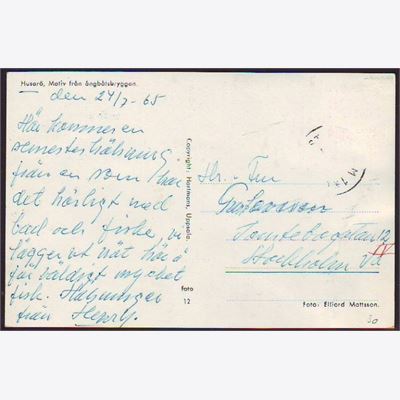 Husarö, Motiv från ångbåtsbryggan.
den 24/7 - 65
Här kommer en
semesterhälsning
från en som har
det härligt med
bad och fiske, vi
lägger ut nät här å
får väldigt mycket
fisk. Hälsningar
från Henry.
Copyright: Hartmans, Uppsala.
Foto
12
Hr. - Fru
Gustavsson
Tomtebogatan 12
Stockholm Va
IV
Foto: Elfjord Mattsson.
30